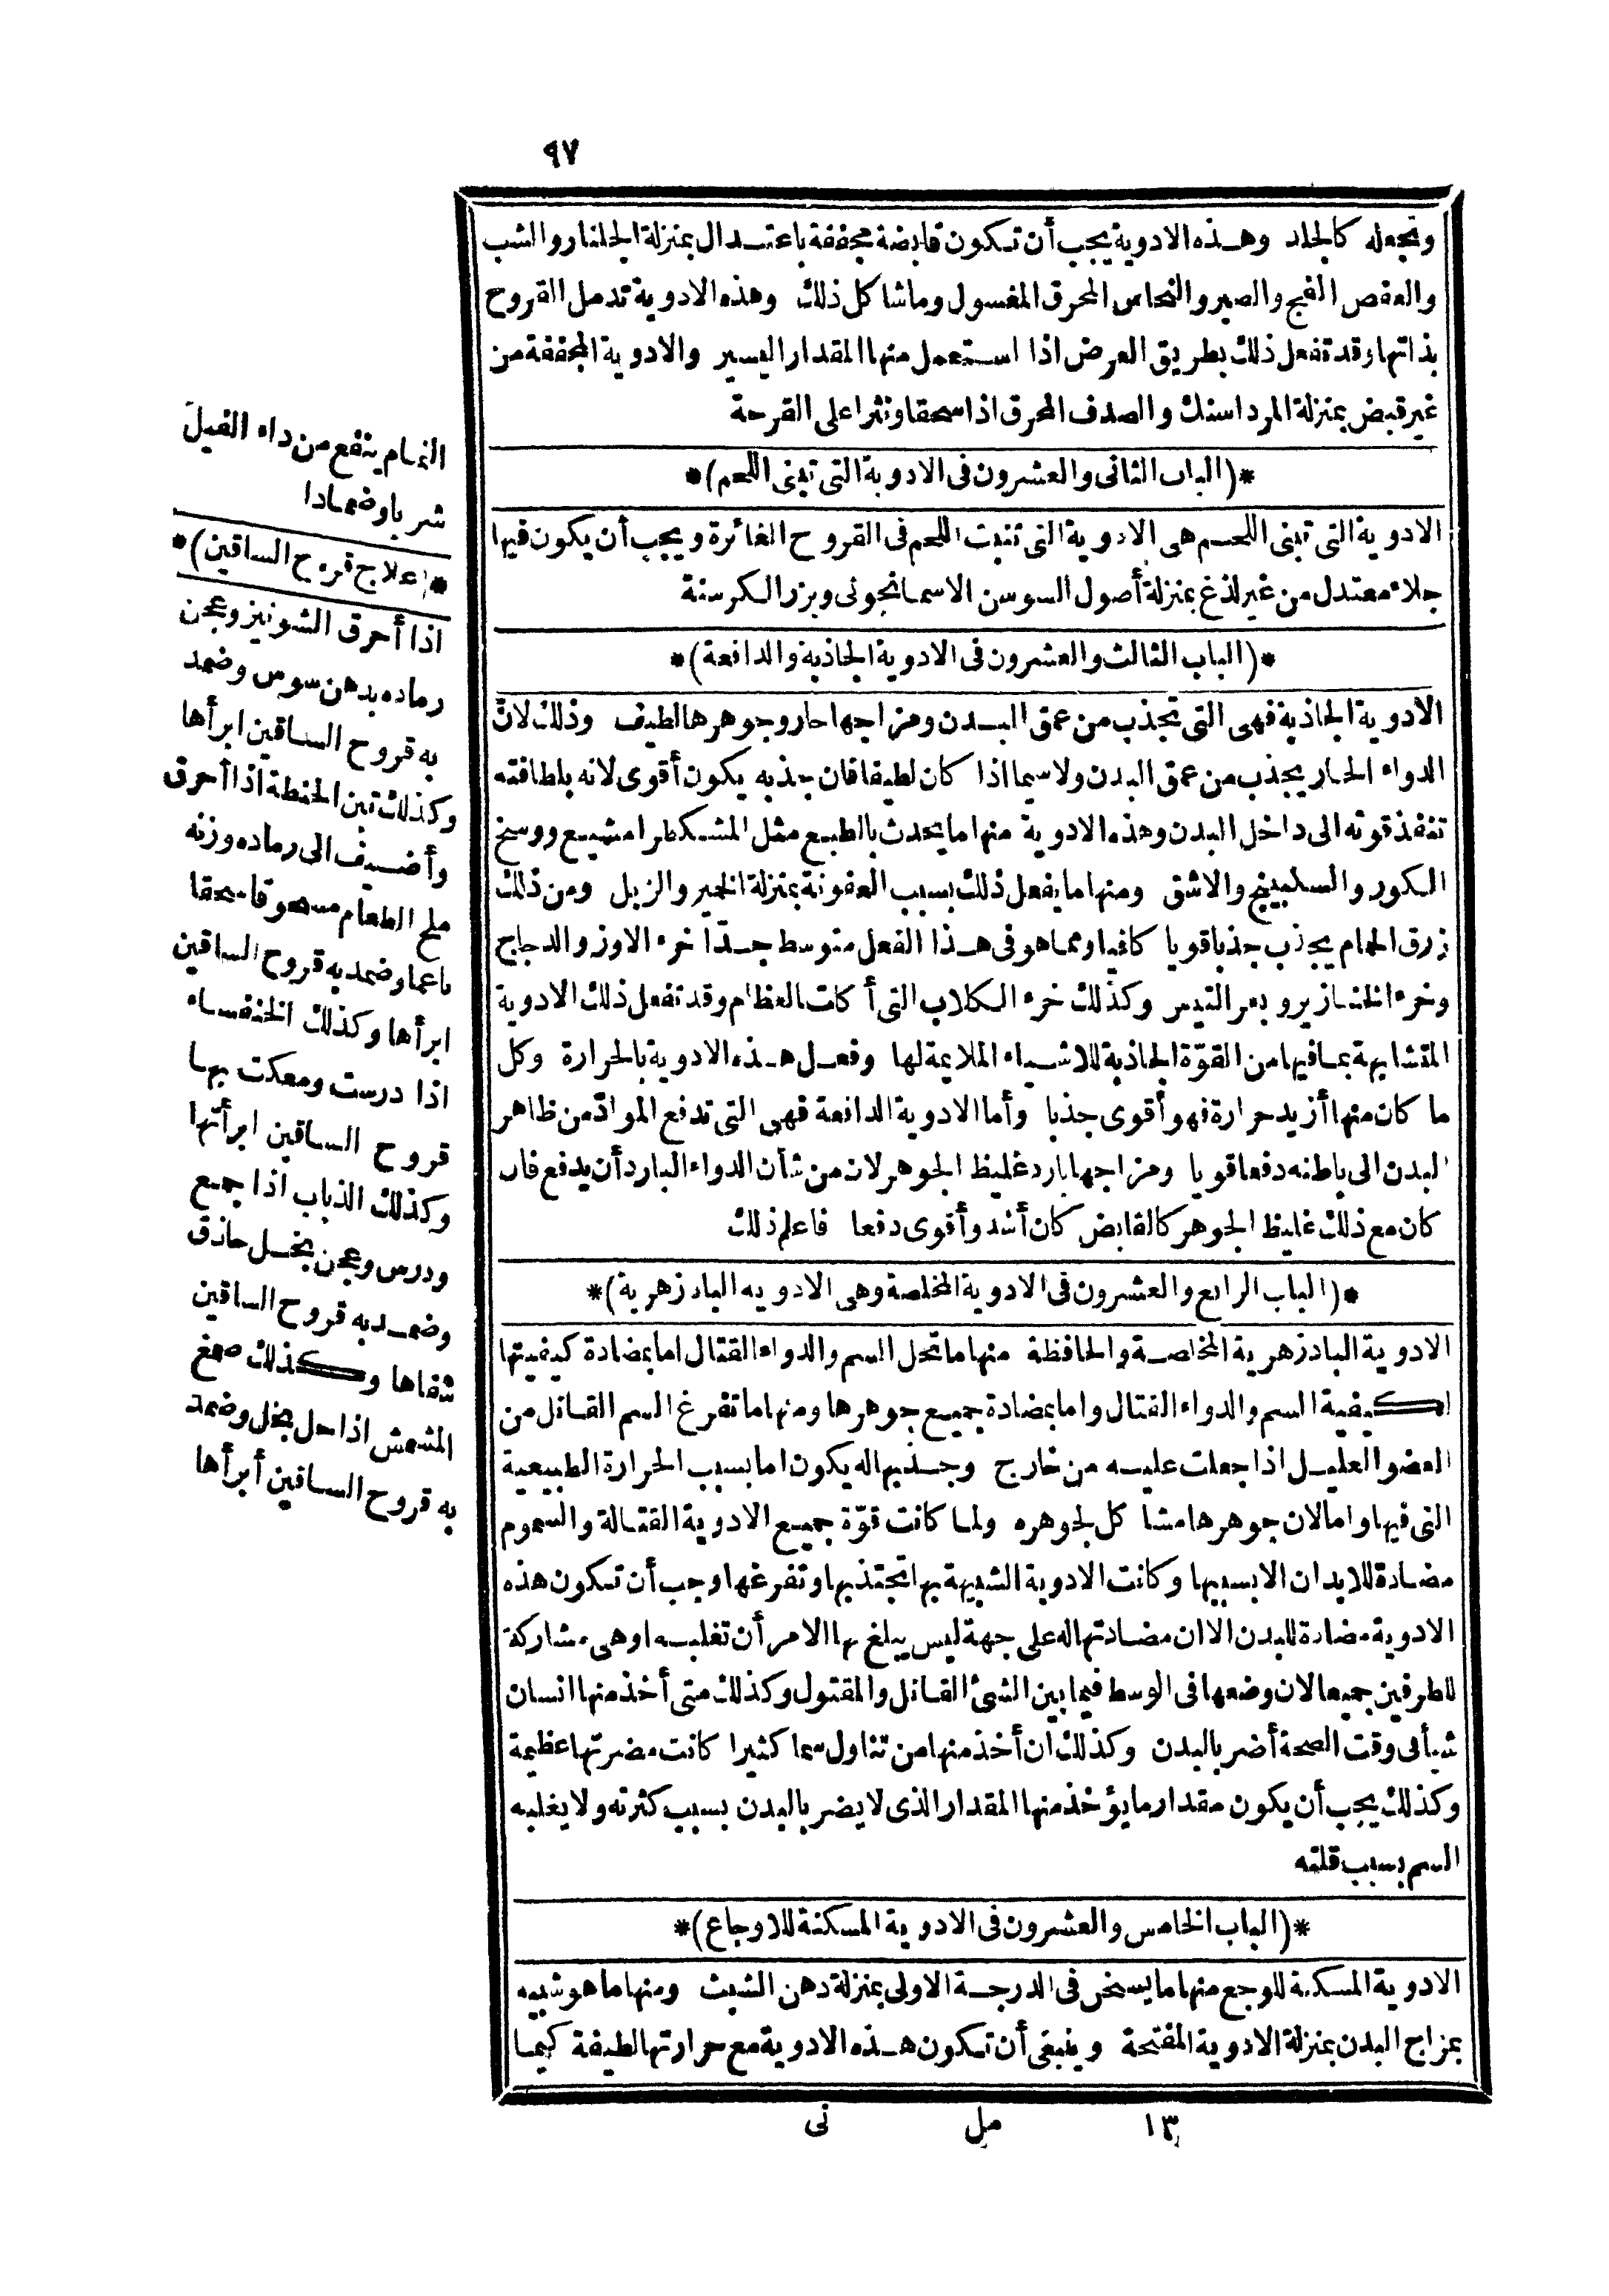 ٩٧
وتجعله كالجلد وهذه الادوية يجب أن تكون قابضة مجففة باعتدال بمنزلة الجلنار والشب
والعفص الفج والصبر والنحاس المحرق المغسول وما شاكل ذلك وهذه الادوية تدمل القروح
بذاتها وقد تفعل ذلك بطريق العرض اذا استعمل منها المقدار اليسير والادوية المجففة من
غير قبض بمنزلة المرداسنك والصدف المحرق اذا سحقا ونثرا على القرحة
*(الباب الثانى والعشرون فى الادوية التى تبنى اللحم)*
الادوية التى تبنى اللحم هى الادوية التى تنبت اللحم فى القروح الغائرة ويجب أن يكون فيها
جلاء معتدل من غير لذغ بمنزلة أصول السوسن الاسمانجونى وبزر الكرسنة
*(الباب الثالث والعشرون فى الادوية الجاذبة والدافعة)*
الادوية الجاذبة فهى التى تجذب من عمق البدن ومزاجها حار وجوهرها لطيف وذلك لانّ
الدواء الحار يجذب من عمق البدن ولا سيما اذا كان لطيفا فان جذبه يكون أقوى لانه بلطافته
تنفذ قوته الى داخل البدن وهذه الادوية منها ما يحدث بالطبع مثل المشكطرامشيع ووسخ
الكور والسكبينج والاشق ومنها ما يفعل ذلك بسبب العفونة بمنزلة الخمير والزبل ومن ذلك
زرق الحمام يجذب جذبا قويا كافيا ومما هو فى هذا الفعل متوسط جدّا خرء الاوز والدجاج
وخرء الخنازير وبعر التيس وكذلك خرء الكلاب التى أكلت العظام وقد تفعل ذلك الادوية
المتشابهة بما فيها من القوّة الجاذبة للاشياء الملايمة لها وفعل هذه الادوية بالحرارة وكل
ما كان منها أزيد حرارة فهو أقوى جذبا وأما الادوية الدافعة فهى التى تدفع الموادّ من ظاهر
البدن الى باطنه دفعا قويا ومزاجها بارد غليظ الجوهر لان من شأن الدواء البارد أن يدفع فان
كان مع ذلك غليظ الجوهر كالقابض كان أشد وأقوى دفعا فاعلم ذلك
*(الباب الرابع والعشرون فى الادوية المخلصة وهى الادويه البادزهرية)*
الادوية البادزهرية المخلصة والحافظة منها ما تحل السم والدواء القتال اما بمضادة كيفيتها
لكيفية السم والدواء القتال واما بمضادة جميع جوهرها ومنها ما تفرغ السم القاتل من
العضو العليل اذا جعلت عليه من خارج وجذبها له يكون اما بسبب الحرارة الطبيعية
التى فيها واما لان جوهرها مشاكل لجوهره ولما كانت قوّة جميع الادوية القتالة والسموم
مضادة للابدان الا بسببها وكانت الادوية الشبيهة بها تجتذبها وتفرغها وجب أن تكون هذه
الادوية مضادة للبدن الا ان مضادتها له على جهة ليس يبلغ بها الامر أن تغلبه او هى مشاركة
للطرفين جميعا لان وضعها فى الوسط فيما بين الشئ القاتل والمقتول وكذلك متى أخذ منها انسان
شيأ فى وقت الصحة أضر بالبدن وكذلك ان أخذ منها من تناول سما كثيرا كانت مضرتها عظيمة
وكذلك يجب أن يكون مقدار ما يؤخذ منها المقدار الذى لا يضر بالبدن بسبب كثرته ولا يغلبه
السم بسبب قلته
*(الباب الخامس والعشرون فى الادوية المسكنة للاوجاع)*
الادوية المسكنة للوجع منها ما يسخن فى الدرجة الاولى بمنزلة دهن الشبث ومنها ما هو شبيه
بمزاج البدن بمنزلة الادوية المفتحة وينبغى أن تكون هذه الادوية مع حرارتها لطيفة كيما
١٣ مل نى
النمام ينفع من داء الفيل
شربا وضمادا
*(علاج قروح الساقين)*
اذا أحرق الشونيز وعجن
رماده بدهن سوسن وضمد
به قروح الساقين ابرأها
وكذلك تبن الحنطة اذا أحرق
وأضيف الى رماده وزنه
ملح الطعام مسحوقا سحقا
ناعما وضمد به قروح الساقين
ابرأها وكذلك الخنفساء
اذا درست ومعكت بها
قروح الساقين ابرأتها
وكذلك الذباب اذا جمع
ودرس وعجن بخل حاذق
وضمد به قروح الساقين
شفاها وكذلك صمغ
المشمش اذا حل بخل وضمد
به قروح الساقين أبرأها